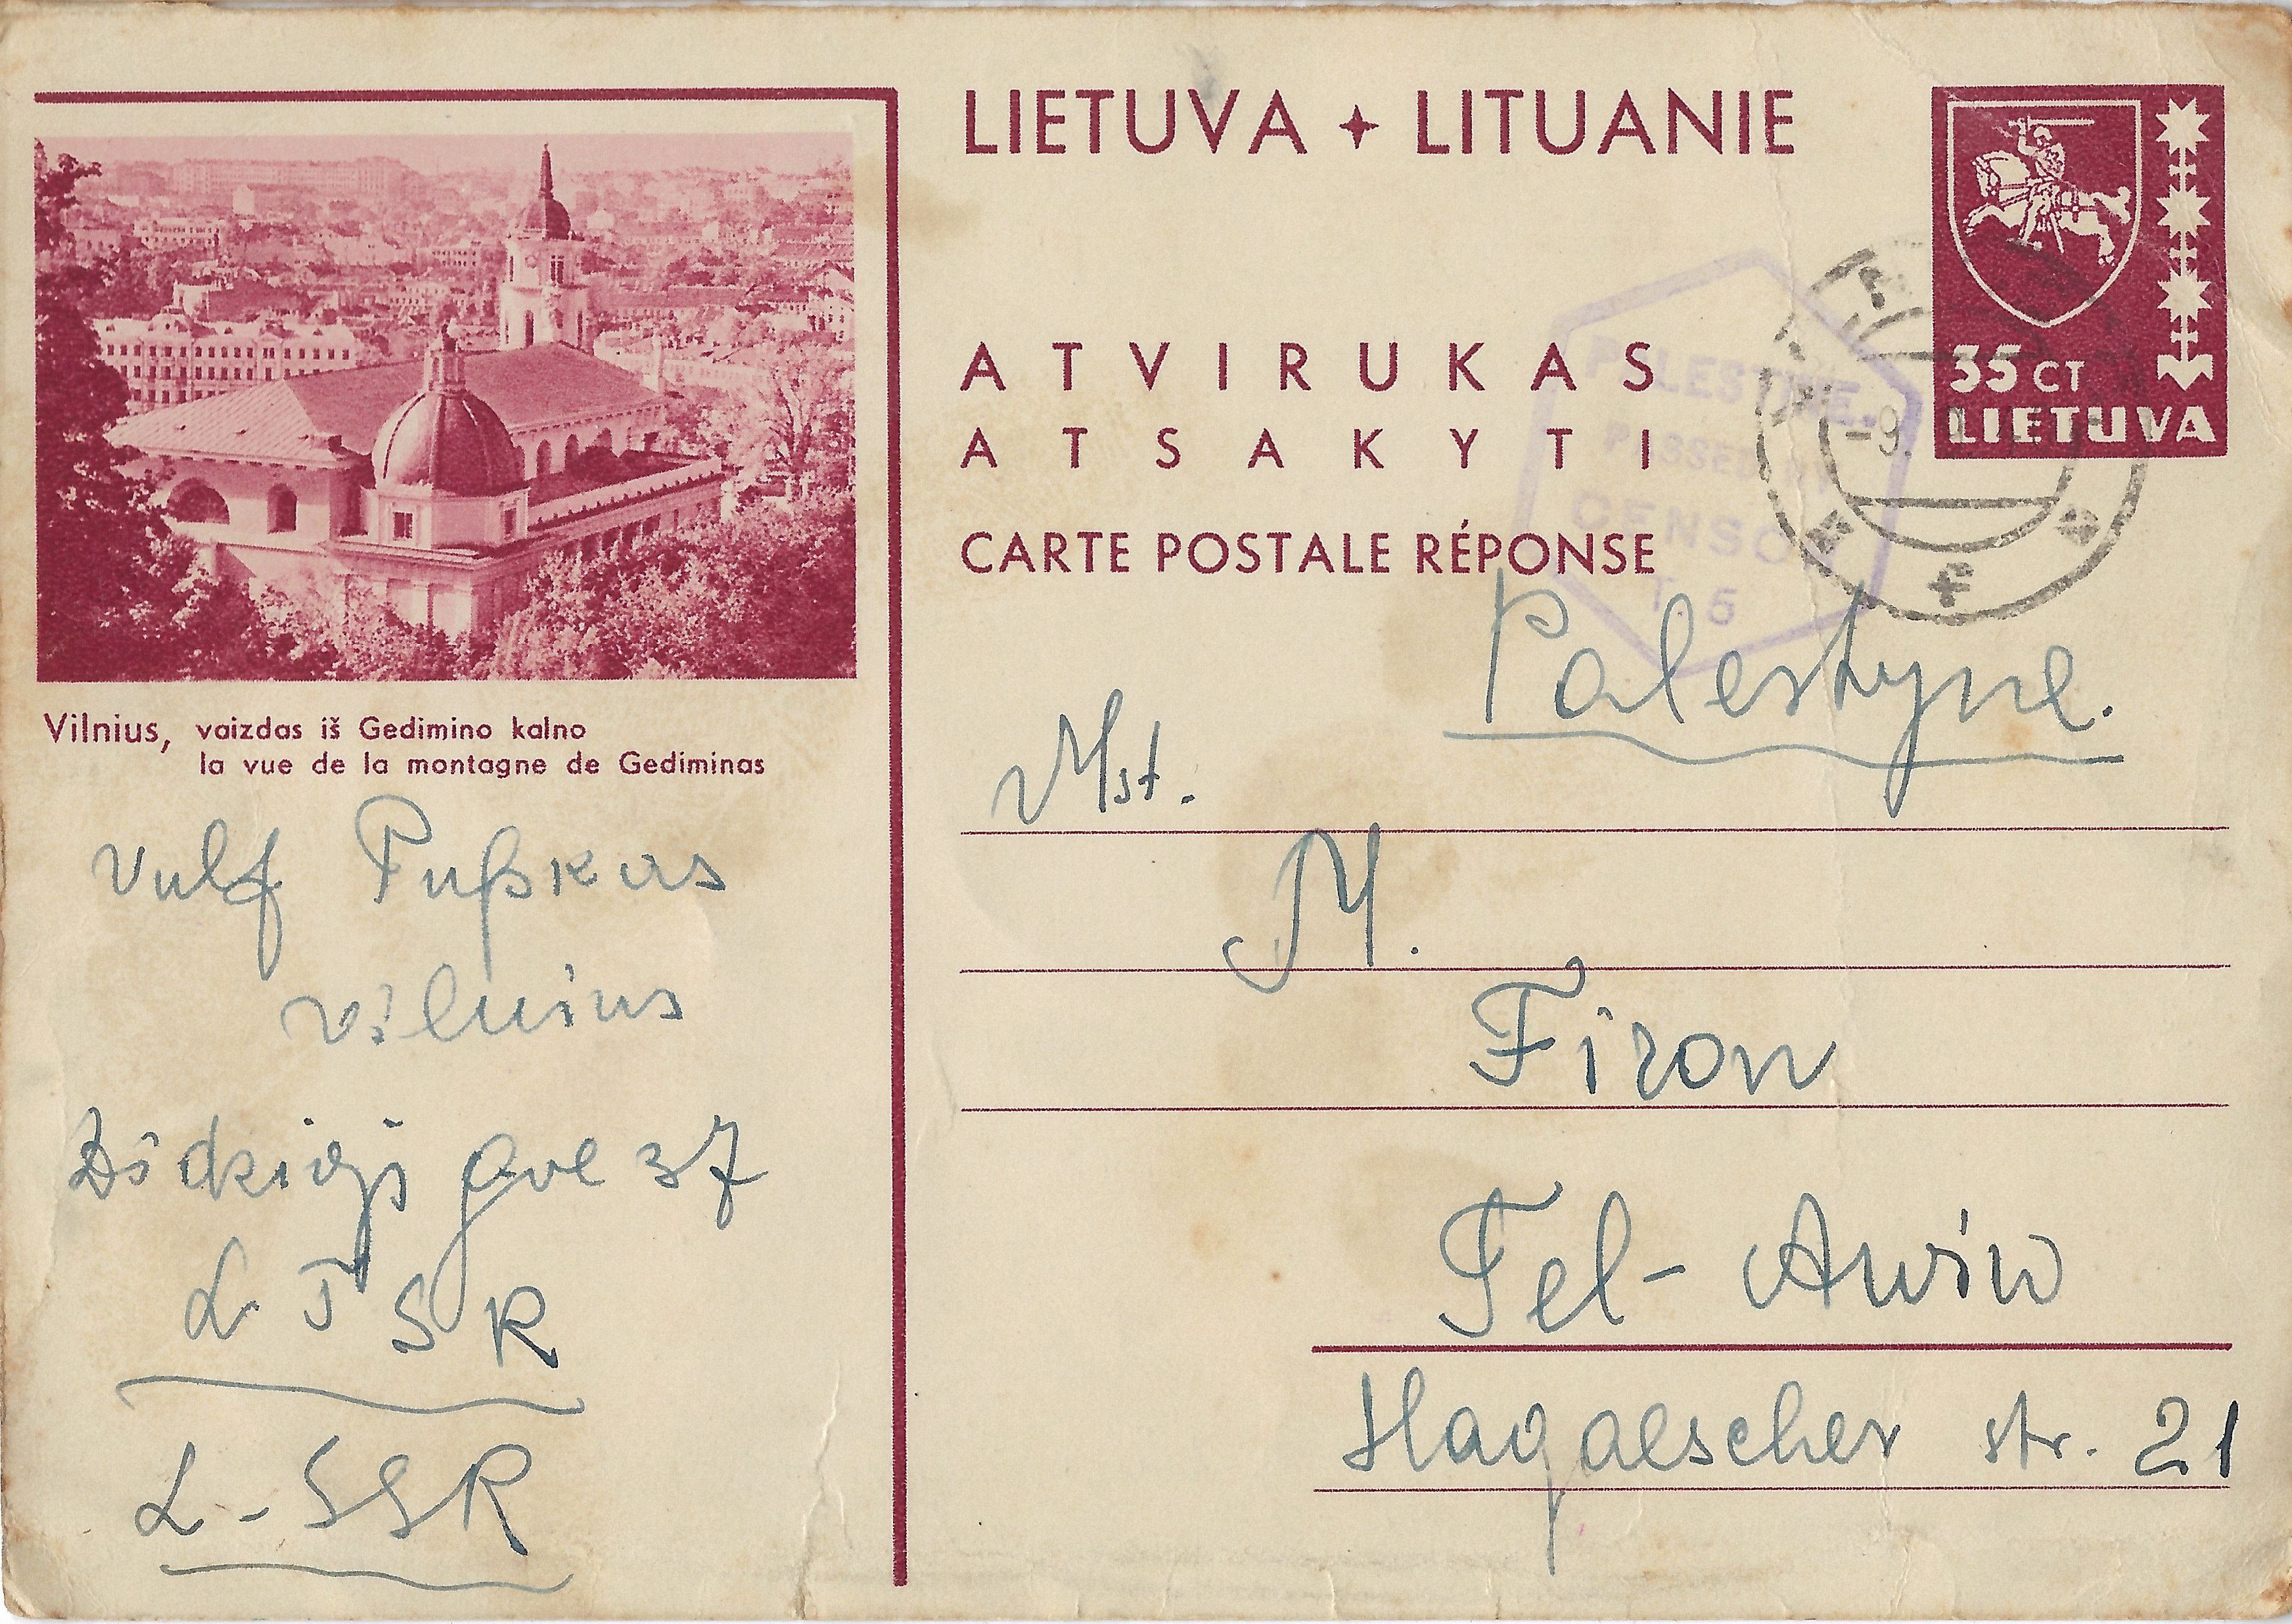 LIETUVA + LITUANIE
35 CT
LIETUVA
ATVIRUKAS
ATSAKYTI
CARTE POSTALE RÉPONSE
PALESTINE.
PASSED BY
CENSOR
T. 5
-9.
Vilnius, vaizdas iš Gedimino kalno
la vue de la montagne de Gediminas
Vulf Pußkas
Vilnius
Didzioji gve 37
L T S R
L - SSR
Palestyne.
Mst.
M.
Firon
Tel- Awiw
Hagaescher str. 21